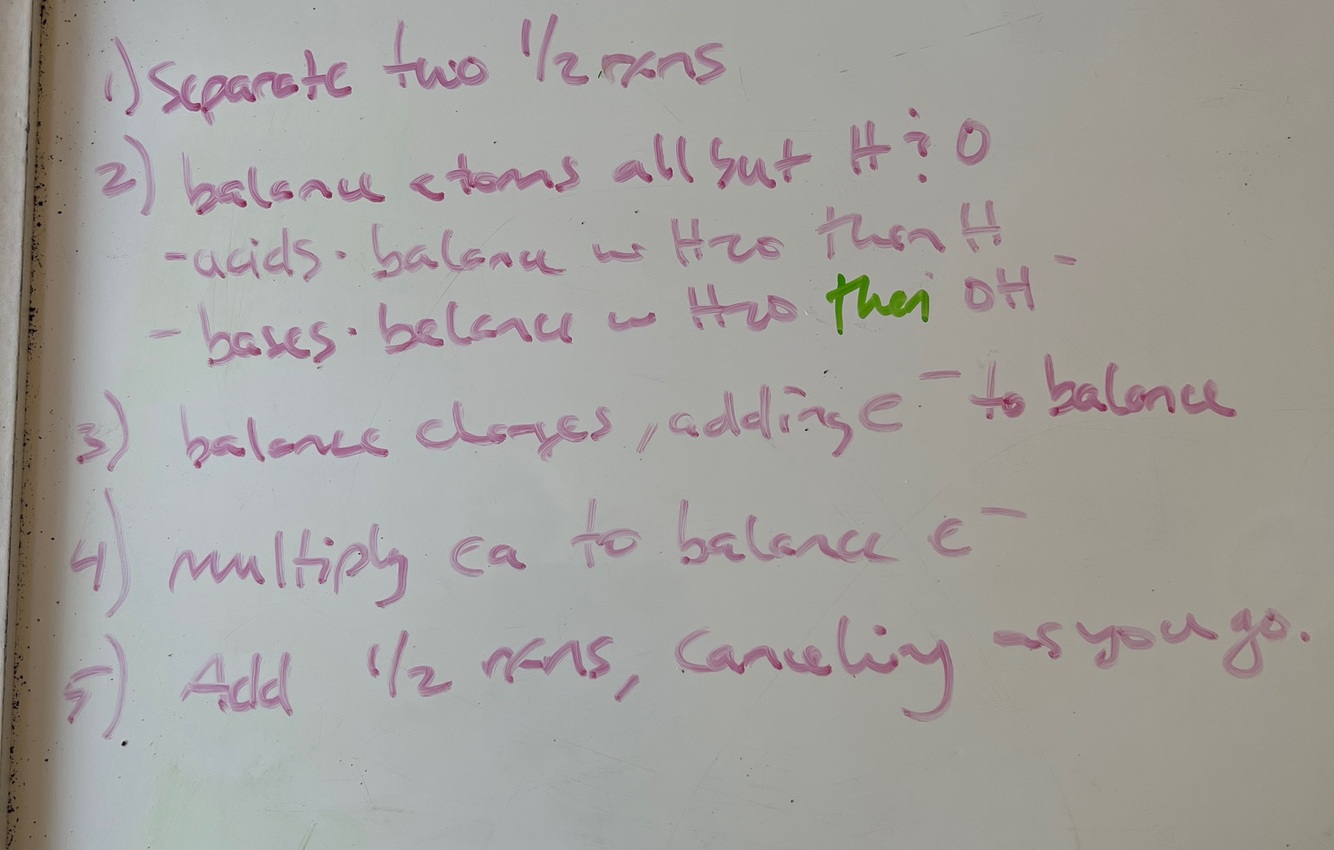 1) Separate two 1/2 rxns
2) balance atoms all but H & O
- acids · balance w H2O then H
- bases · balance w H2O then OH⁻
3) balance charges, adding e⁻ to balance
4) multiply ea to balance e⁻
5) Add 1/2 rxns, canceling as you go.